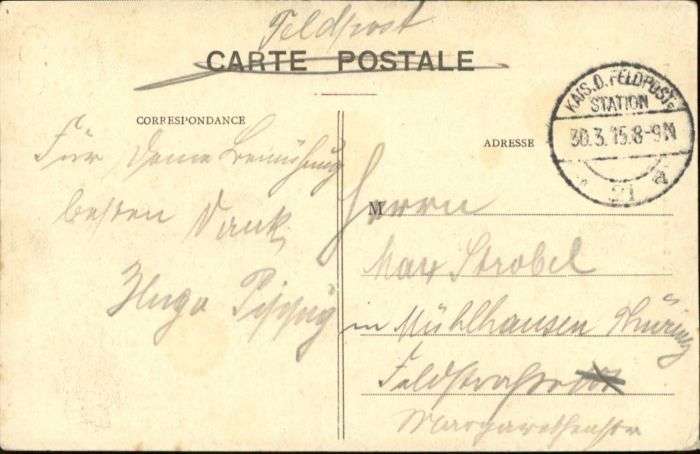 Feldpost
CARTE POSTALE
CORRESPONDANCE
ADRESSE
KAIS. D. FELDPOST
STATION
30.3.15.8-9N
21 a
Für Deine Bemühung
besten Dank
Hugo
M Herrn
Max Strobel
in Mühlhausen Thüring
Feldstrasse
Margarethenstr